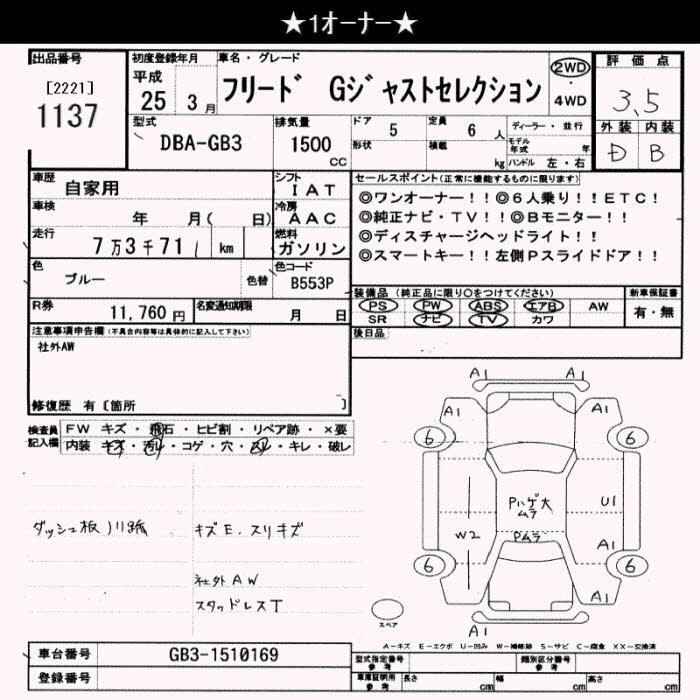 ★1オーナー★
出品番号
[2221]
1137
初度登録年月
平成
25 3月
車名・グレード
フリード Gジャストセレクション
2WD
・
4WD
評価点
3.5
外装 内装
D B
型式
DBA-GB3
排気量
1500
cc
ドア 5
形状
定員 6 人
積載 kg
ディーラー・並行
モデル年式 年
ハンドル 左・右
車歴 自家用
車検 年 月( 日)
走行 7万3千71 km
色 ブルー 色替
シフト IAT
冷房 AAC
燃料 ガソリン
色コード B553P
セールスポイント(正常に機能するものに限ります)
◎ワンオーナー!!◎6人乗り!!ETC!
◎純正ナビ・TV!!◎Bモニター!!
◎ディスチャージヘッドライト!!
◎スマートキー!!左側Pスライドドア!!
R券 11,760円
名変通知期限 月 日
装備品(純正品に限り○をつけてください)
PS PW ABS エアB AW
SR ナビ TV カワ
新車保証書
有・無
後日品
注意事項申告欄(不具合内容等は具体的に記入して下さい)
社外AW
修復歴 有〔箇所 〕
検査員記入欄
FW キズ・飛石・ヒビ割・リペア跡・×要
内装 キズ・汚レ・コゲ・穴・スレ・キレ・破レ
キズE.スリキズ
社外AW
スタッドレスT
A1 A1
A1 A1
6 6
Pハゲ大
ムラ
U1
W2
Pムラ
A1
6 6
A1
A1
スペア
A-キズ E-エクボ U-凹み W-補修跡 S-サビ C-腐食 XX-交換済
車台番号 GB3-1510169
登録番号
型式指定番号
参考
類別区分番号
参考
車庫証明用
参考
長さ cm
幅 cm
高さ cm